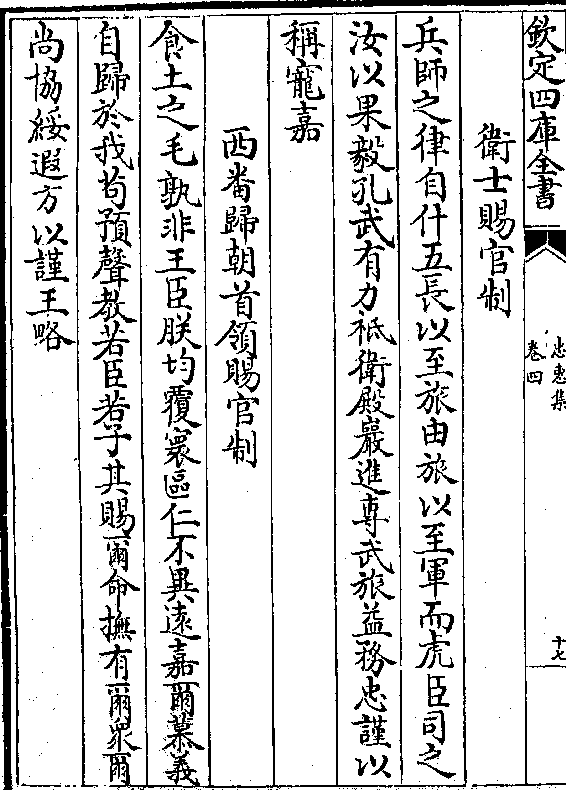 欽定四庫全書
忠惠集
卷四
十七
衛士賜官制
兵師之律自什五長以至旅由旅以至軍而虎臣司之
汝以果毅孔武有力祗衛殿巖進專武旅益務忠謹以
稱寵嘉
西畨歸朝首領賜官制
食土之毛孰非王臣朕均覆寰區仁不異逺嘉爾慕義
自歸於我茍預聲教若臣若子其賜爾命撫有爾衆爾
尚協綏遐方以謹王略